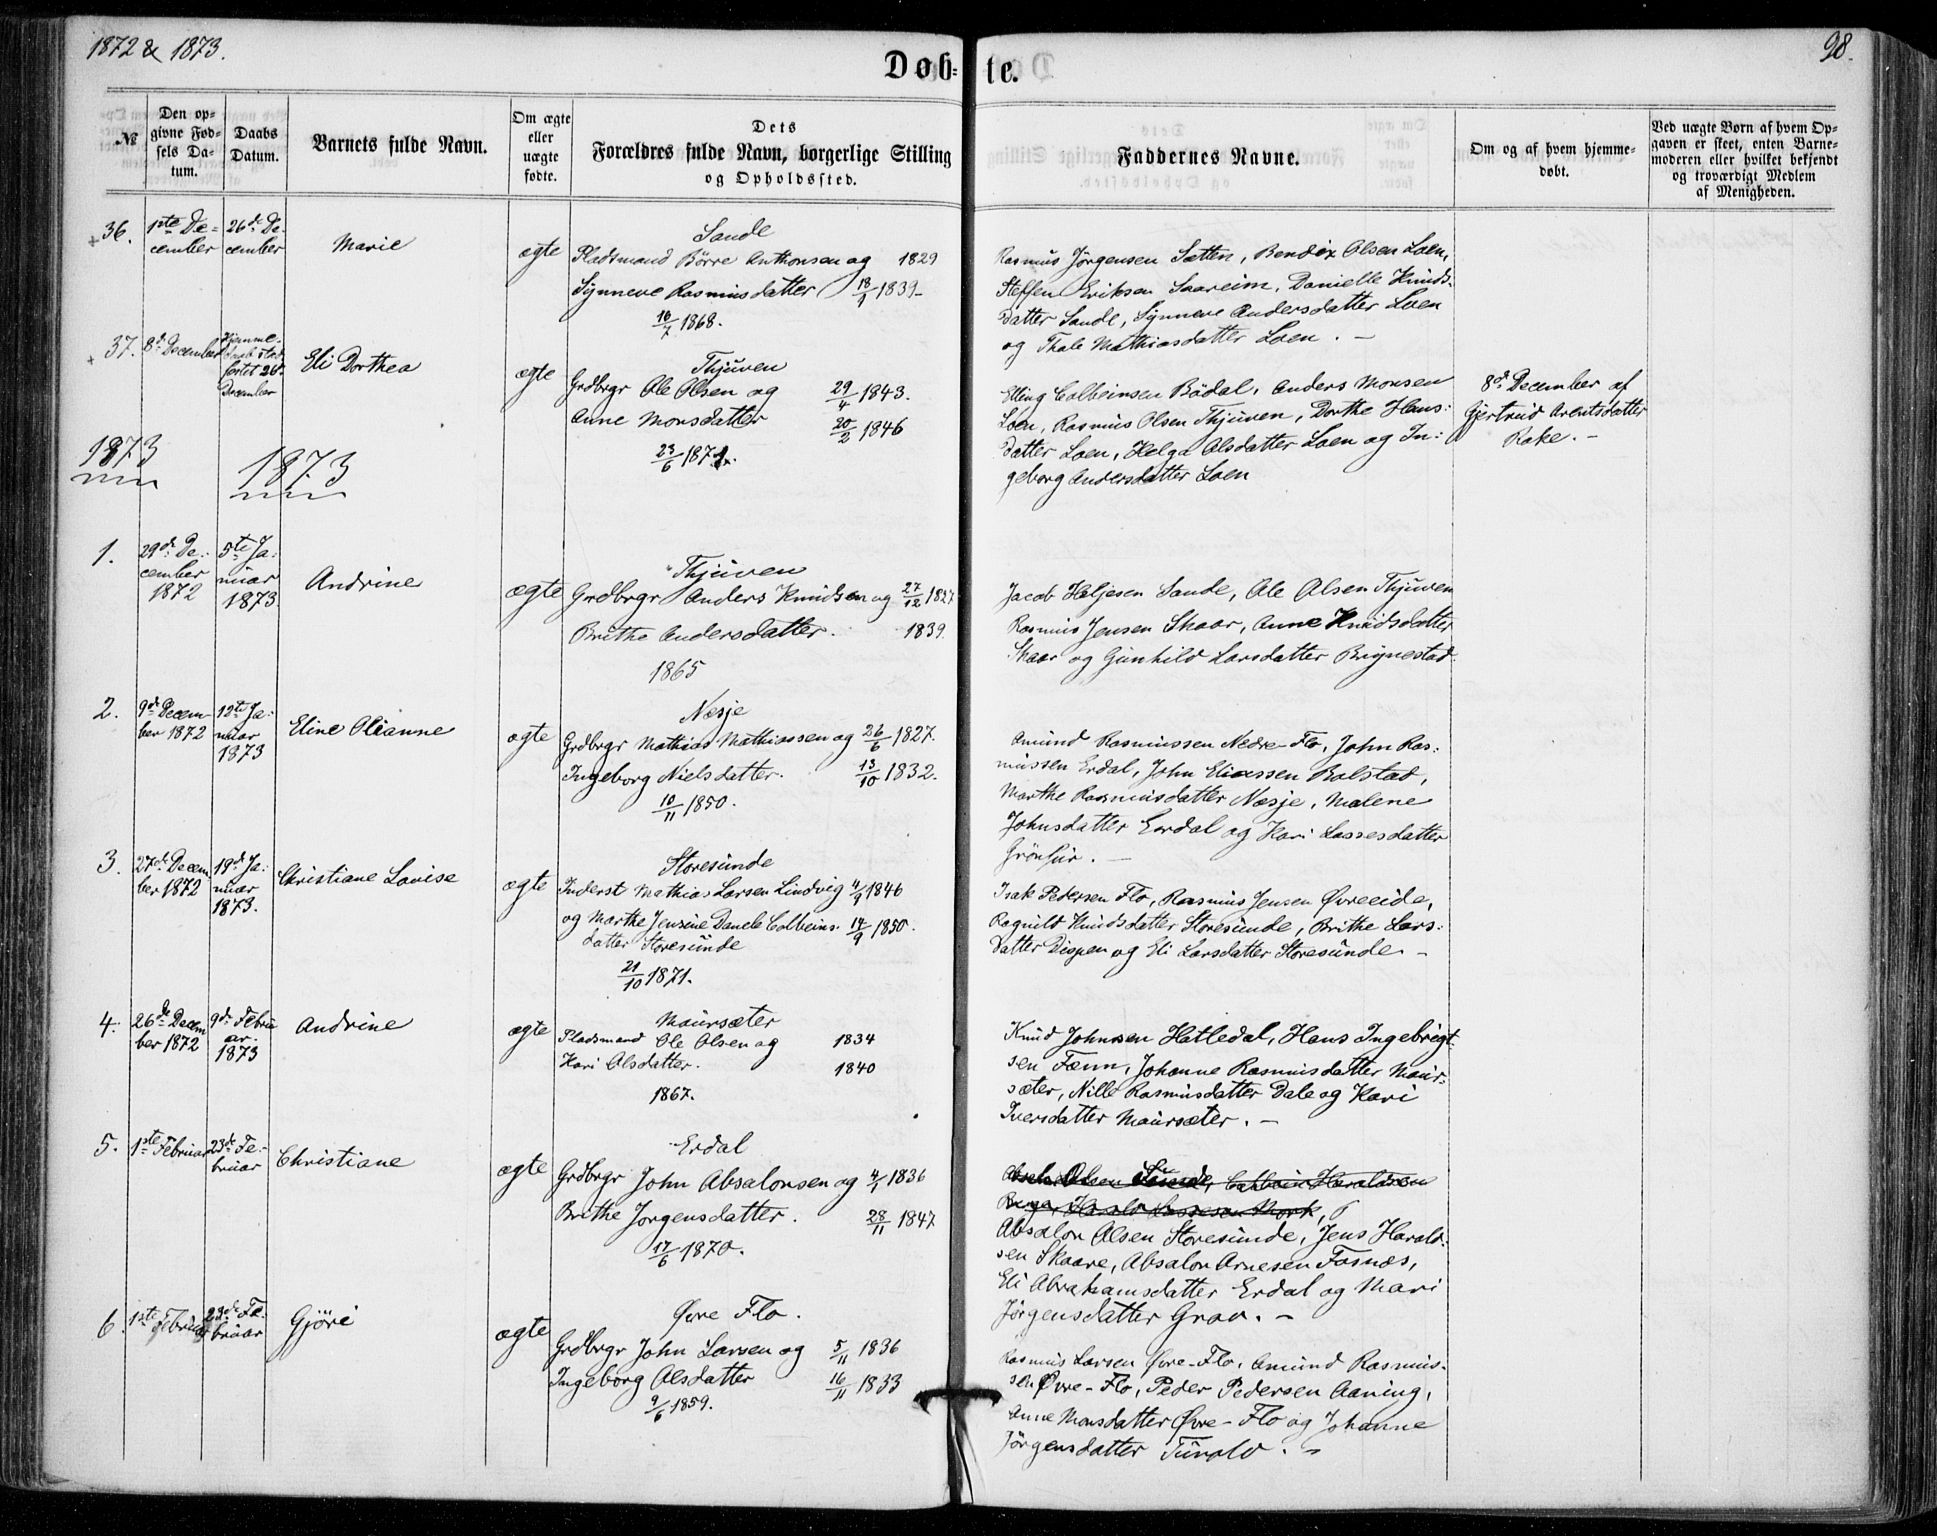 1872 & 1873.
98.
Døb-te.
№
Den opgivne Fød-
sels Da-
tum.
Daabs
Datum.
Barnets fulde Navn.
Om ægte
eller
uægte
fødte.
Dets
Forældres fulde Navn, borgerlige Stilling
og Opholdssted.
Faddernes Navne.
Om og af hvem hjemme-
døbt.
Ved uægte Børn af hvem Op-
gaven er skeet, enten Barne-
moderen eller hvilket bekjendt
og troværdigt Medlem
af Menigheden.
36.
1ste De-
cember
26de De-
cember
Marie
ægte
Sande
Pladsmand Börre Anthonsen og 1829
Synneve Rasmusdatter 18/1 1839-
16/7 1868.
Rasmus Jörgensen Sætten, Bendix Olsen Loen,
Steffen Eriksen Saareim, Danielle Knuds-
datter Sande, Synneve Andersdatter Loen
og Thale Mathiasdatter Loen. -
37.
8de December
Hjemme-
daab stad-
fæstet 26de
December
Eli Dorthea
ægte
Thjuven
Grdbrgr Ole Olsen og 29/4 1843.
Anne Monsdatter 20/2 1846
23/6 1871.
Elling Colbeinsen Bödal, Anders Monsen
Loen, Rasmus Olsen Thjuven, Dorthe Hans-
datter Loen, Helga Olsdatter Loen og In-
geborg Andersdatter Loen
8de December af
Gjertrud Arentsdatter
Rake. -
1873
1873
1.
29de De-
cember
1872
5te Ja-
nuar
1873
Andrine
ægte
Thjuven
Grdbrgr Anders Knudsen og 27/12 1827
Brithe Andersdatter. 1839
1865
Jacob Heljesen Sande, Ole Olsen Thjuven
Rasmus Jensen Skaar, Anne Knudsdatter
Skaar og Gunhild Larsdatter Brynestad
2.
9de Decem-
ber 1872
12te Ja-
nuar
1873
Eline Olianne
ægte
Nesje
Grdbrgr Mathias Mathiassen og 26/6 1827.
Ingeborg Nielsdatter. 13/10 1832.
10/11 1850.
Amund Rasmussen Nedre-Flo, John Ras-
mussen Erdal, John Eliassen Bolstad,
Marthe Rasmusdatter Næsje, Malene
Johnsdatter Erdal og Kari Lassesdatter
Grönfur. -
3.
27de Decem-
ber 1872
19de Ja-
nuar
1873.
Christiane Lovise
ægte
Storesunde
Inderst Mathias Larsen Lindvig 4/9 1846
og Marthe Jensine Danele Colbeins- 14/9 1850.
datter Storesunde
21/10 1871.
Isak Pedersen Flo, Rasmus Jensen Øvreeide,
Ragnild Knudsdatter Storesunde, Brithe Lars-
datter Dispen og Eli Larsdatter Storesunde -
4.
26de Decem
ber 1872
9de Febru
ar.
1873
Andrine
ægte
Maursæter
Pladsmand Ole Olsen og 1834
Kari Olsdatter. 1840
1867.
Knud Johnsen Hatledal, Hans Ingebrigt-
sen Fænn, Johanne Rasmusdatter Maur-
sæter, Nille Rasmusdatter Dale og Kari
Iversdatter Maursæter. -
5.
1ste Februar
23de Fe-
bruar
Christiane
ægte
Erdal
Grdbrgr John Absalonsen og 4/1 1836
Brithe Jorgensdatter. 28/11 1847
17/6 1870.
Olsen Sunde, Colbein Haraldsen
Harald Lassesen Mork,
Absalon Olsen Storesunde, Jens Harald-
sen Skaare, Absalon Arnesen Fosnæs,
Eli Abrahamsdatter Erdal og Mari
Jörgensdatter Grov. -
6.
1ste Februar
23de Fe-
bruar
Gjöri
ægte
Øvre Flo.
Grdbrgr John Larsen og 5/11 1836
Ingeborg Olsdatter 16/11 1833
9/6 1859.
Rasmus Larsen Øvre-Flo, Amund Rasmus-
sen Øvre-Flo, Peder Pedersen Aaning,
Anne Monsdatter Øvre-Flo og Johanne
Jörgensdatter Turalv. -